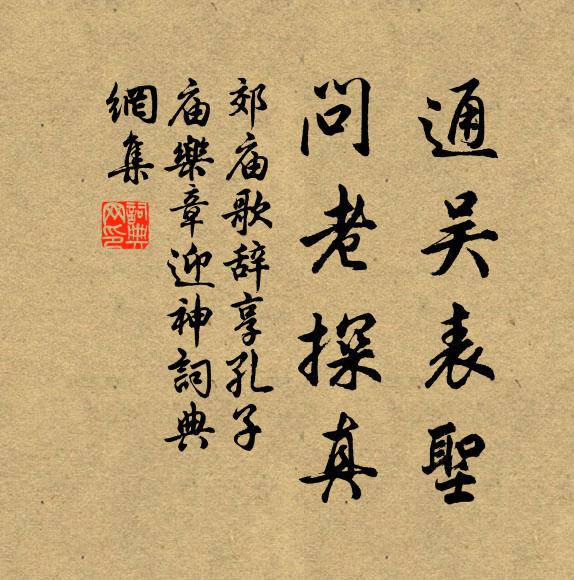 通吴表聖
問老探真
郊庙歌辞享孔子
庙樂章迎神詞典
網集
詞典
网印